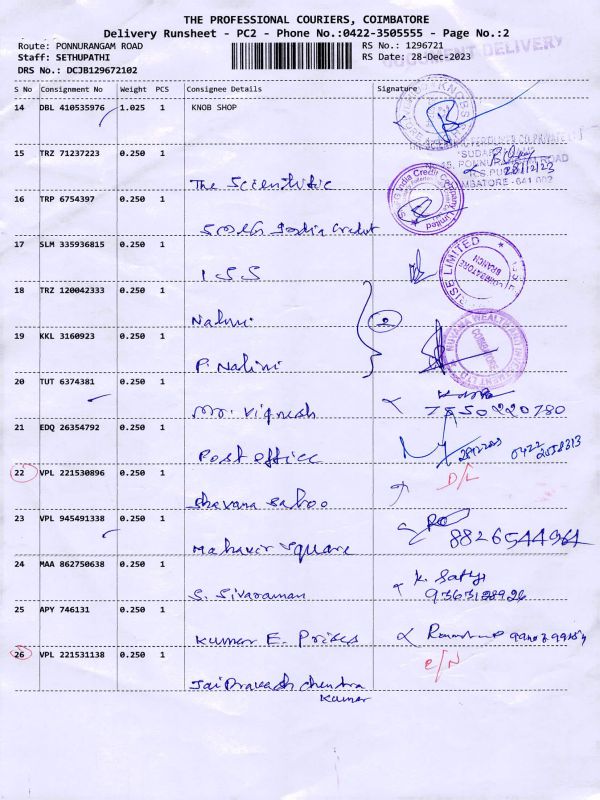 THE PROFESSIONAL COURIERS, COIMBATORE
Delivery Runsheet - PC2 - Phone No.:0422-3505555 - Page No.:2
Route: PONNURANGAM ROAD RS No.: 1296721
Staff: SETHUPATHI RS Date: 28-Dec-2023
DOCUMENT DELIVERY
DRS No.: DCJB129672102
S No Consignment No Weight PCS Consignee Details Signature
14 DBL 410535976 1.025 1 KNOB SHOP
15 TRZ 71237223 0.250 1
The Scientific
28/12/23
COIMBATORE - 641 002
16 TRP 6754397 0.250 1
SMERG India Credit
India Credit Company Limited
17 SLM 335936815 0.250 1
ISS
RISE LIMITED
COIMBATORE
BRANCH
18 TRZ 120042333 0.250 1
Nalini
2
19 KKL 3160923 0.250 1
P. Nalini
NUVAMA WEALTH
COIMBATORE
20 TUT 6374381 0.250 1
Mr. Vignesh
7550220780
21 EDQ 26354792 0.250 1
Post office
0422
22 VPL 221530896 0.250 1
D/L
Shavana Saboo
23 VPL 945491338 0.250 1
Mahavir Square
8826544964
24 MAA 862750638 0.250 1
S. Sivaraman
K. Sathya
9363128926
25 APY 746131 0.250 1
Kumar E. Prises
26 VPL 221531138 0.250 1
C/N
Jai Prakash Chendra
Kumar